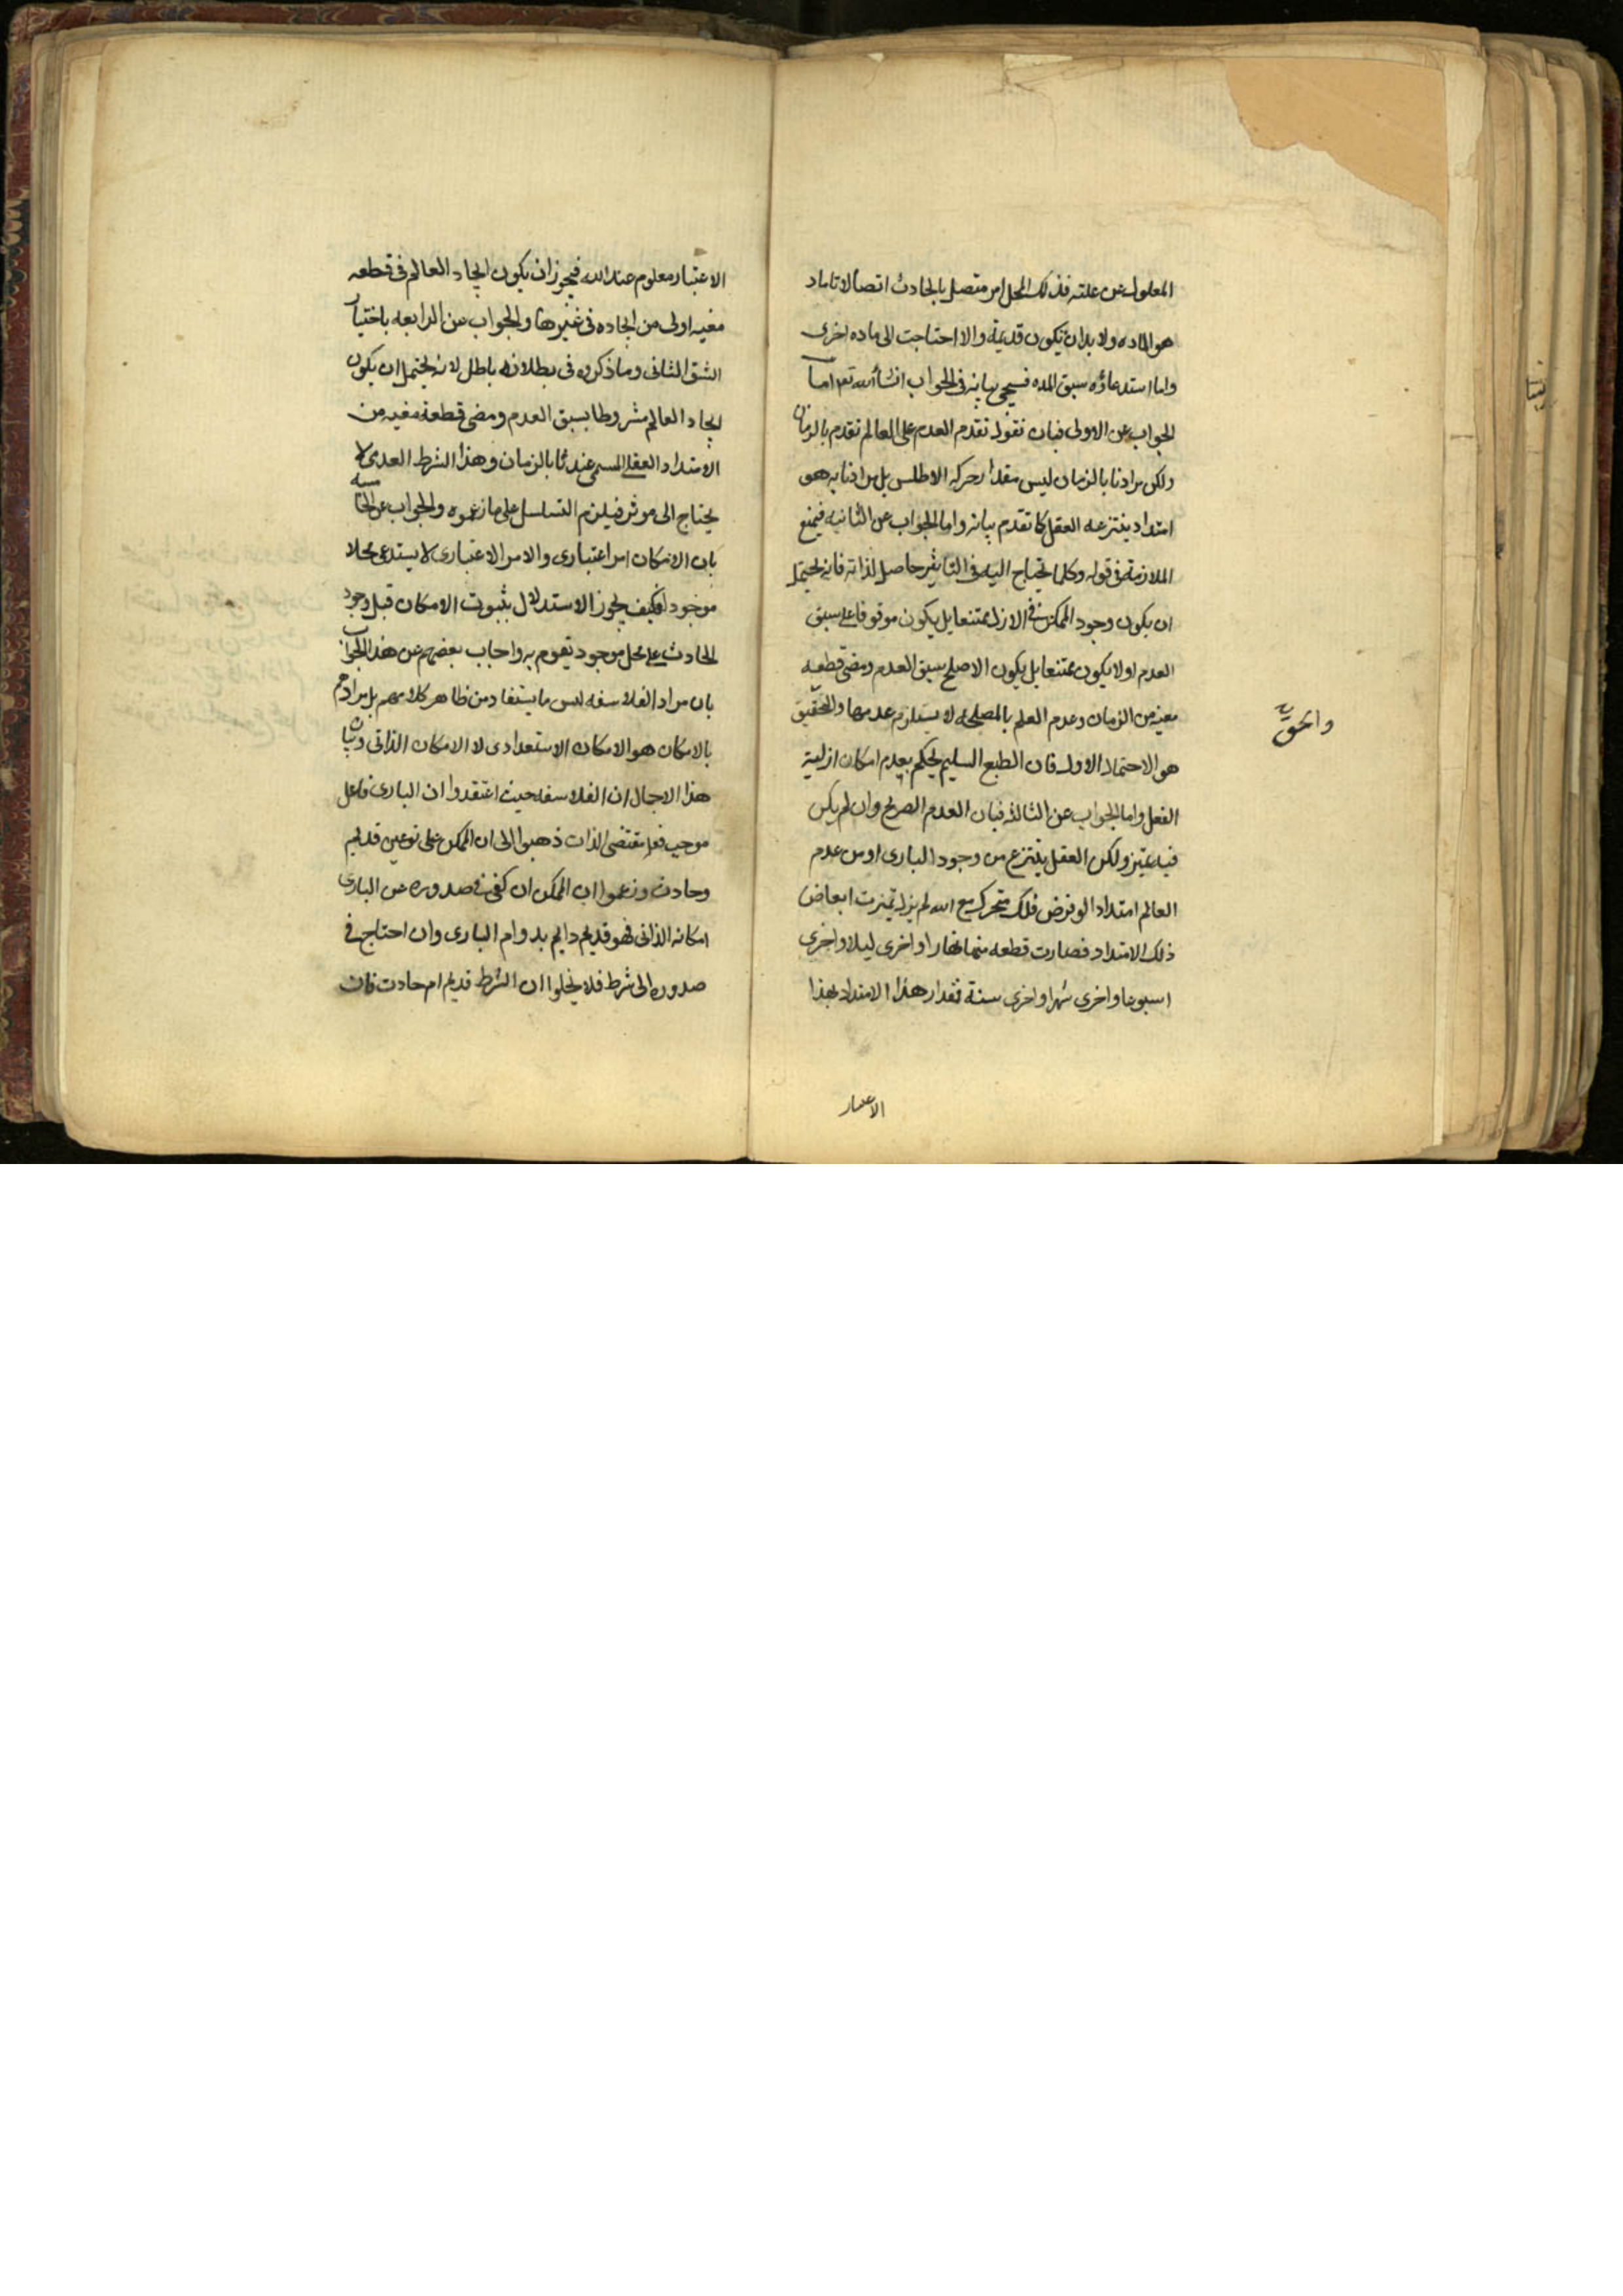 المعلول عن علته فذلك المحل امر متصل بالحادث اتصالا تاما د
هو الماده ولا بد ان تكون قديمة والا احتاجت الى ماده اخرى
واما استدعاؤه سبق المده فسيجي بيانه في الجواب انشأ الله تعـ اما
الجواب عن الاولى فبان نقول تقدم العدم على العالم تقدم بالزمان
ولكن مرادنا بالزمان ليس مقدار حركه الاطلس بل مرادنا به هو
امتداد ينتزعه العقل كما تقدم بيانه واما الجواب عن الثانيه فيمنع
الملازمة في قوله وكلما يحتاج اليه في التاثير حاصل لذاته فانه يحتمل
ان يكون وجود الممكن في الازل ممتنعا بل يكون موقوفا على سبق
العدم او لا يكون ممتنعا بل يكون الاصلح سبق العدم ومضى قطعه
معينه من الزمان وعدم العلم بالمصلحه لا يستلزم عدمها والتحقيق
والحق
هو الاحتمال الاول فان الطبع السليم يحكم بعدم امكان ازلية
الفعل واما الجواب عن الثالثه فبان العدم الصريح وان لم يكن
فيه تميز ولكن العقل ينتزع من وجود البارى او من عدم
العالم امتدادا لو فرض فلك متحرك مع الله لم يزل تميزت ابعاض
ذلك الامتداد فصارت قطعه منها نهارا واخرى ليلا واخرى
اسبوعا واخرى شهرا واخرى سنة فمقدار هذا الامتداد بهذا
الاعتبار
الاعتبار معلوم عند الله فيجوز ان يكون ايجاد العالم في قطعه
معينه اولى من ايجاده في غيرها والجواب عن الرابعه باختيار
الشق الثانى وما ذكروه في بطلانه باطل لانه يحتمل ان يكون
ايجاد العالم مشروطا بسبق العدم ومضى قطعة معينه من
الامتداد العقلي المسمى عندنا بالزمان وهذا الشرط العدمى لا
يحتاج الى موثر فيلزم التسلسل على ما زعموه والجواب عن الخامسه
بان الامكان امر اعتبارى والامر الاعتبارى لا يستدعى محلا
موجودا فكيف يجوز الاستدلال بثبوت الامكان قبل وجود
الحادث على محل موجود يقوم به واجاب بعضهم عن هذا الجواب
بان مراد الفلاسفه ليس ما يستفاد من ظاهر كلامهم بل مرادهم
بالامكان هو الامكان الاستعدادى لا الامكان الذاتى وبيان
هذا الاجمال ان الفلاسفه حيث اعتقدوا ان البارى فاعل
موجب فعل بمقتضى الذات ذهبوا الى ان الممكن على نوعين قديم
وحادث وزعموا ان الممكن ان كفى في صدوره عن البارى
امكانه الذاتى فهو قديم دايم بدوام البارى وان احتاج في
صدوره الى شرط فلا يخلوا ان الشرط قديم ام حادث فان